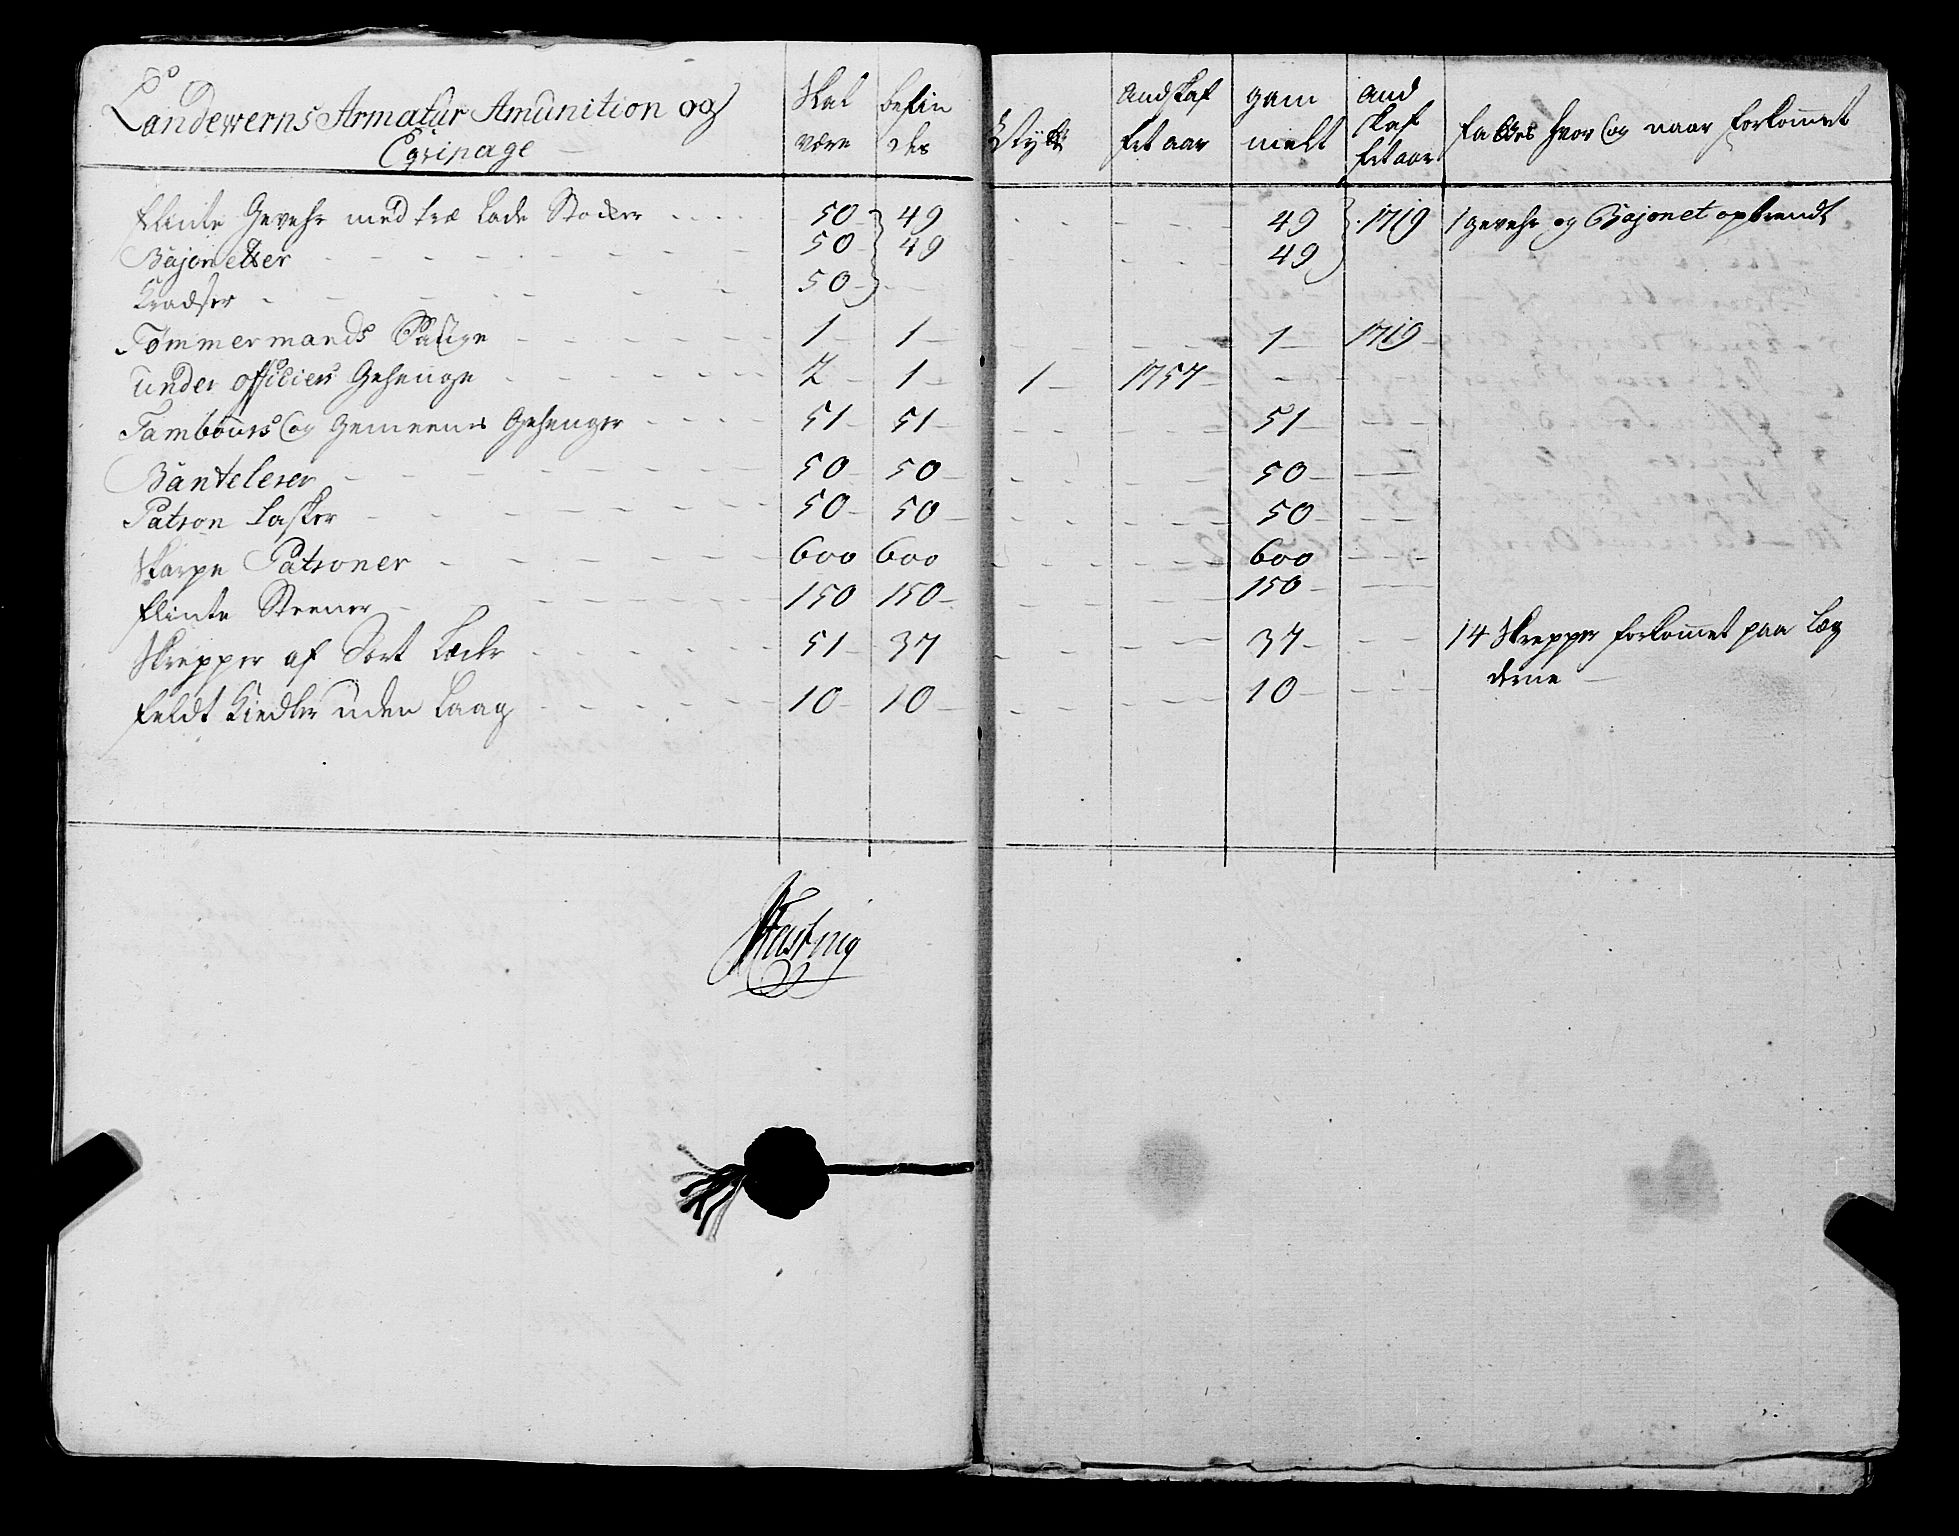 Landewerns Armatur Amunition og
Eqvipage
Skal
være
befin
des
Nytt
Andskaf
fet aar
gam
melt
and
skaf
fet aar
fattes hvor og naar forkommet
Flinte Gevehr med træ lade Stocker 50 49 49 1719 1 gevehr og Bajonet opbrendt
Bajonetter 50 49 49
Kradser 50
Tømmermands Sauge 1 1 1 1719
Under officiers Gehenge 2 1 1 1757
Tambours og Gemeenes Gehenger 51 51 51
Bantelerer 50 50 50
Patron Tasker 50 50 50
Skarpe Patroner 600 600 600
flinte Steener 150 150 150
Skrepper af Sort Læder 51 37 37 14 Skrepper forkommet paa Læg
derne
feldt Kiedler uden Laag 10 10 10